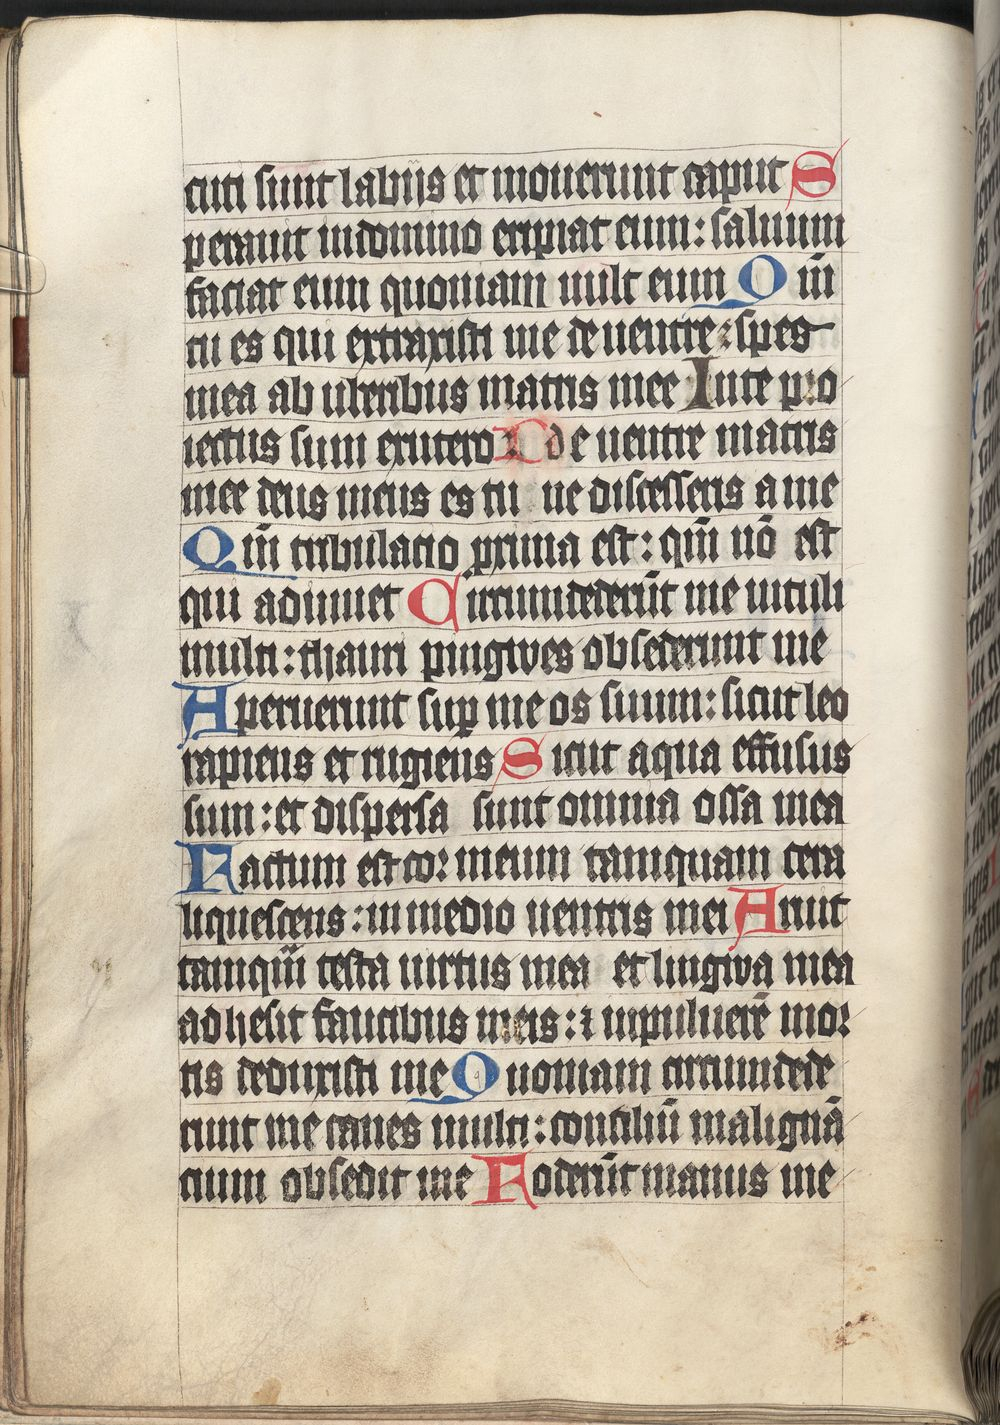 cuti sunt labijs et mouerunt caput S
perauit indomino eripiat eum: saluum
faciat eum quoniam uult eum Qm̄
tu es qui extraxisti me de uentre: spes
mea ab uberibus matris mee Inte pro
iectus sum exutero de uentre matris
mee deus meus es tu ne discesseris a me
Qm̄ tribulatio prima est: qm̄ nō est
qui adiuuet Circumdederūt me uituli
multi: thauri pingwes obsederunt me
Aperuerunt sup me os suum: sicut leo
rapiens et rugiens Sicut aqua effusus
sum: et dispersa sunt omnia ossa mea
Factum est cor meum tamquam cera
liquescens: in medio uentris mei Aruit
tamqm̄ testa uirtus mea et lingwa mea
adhesit faucibus meis: ⁊ inpuluerē mor
tis deduxisti me Quoniam circumdede
runt me canes multi: consiliū malignā
cium obsedit me Foderūt manus me